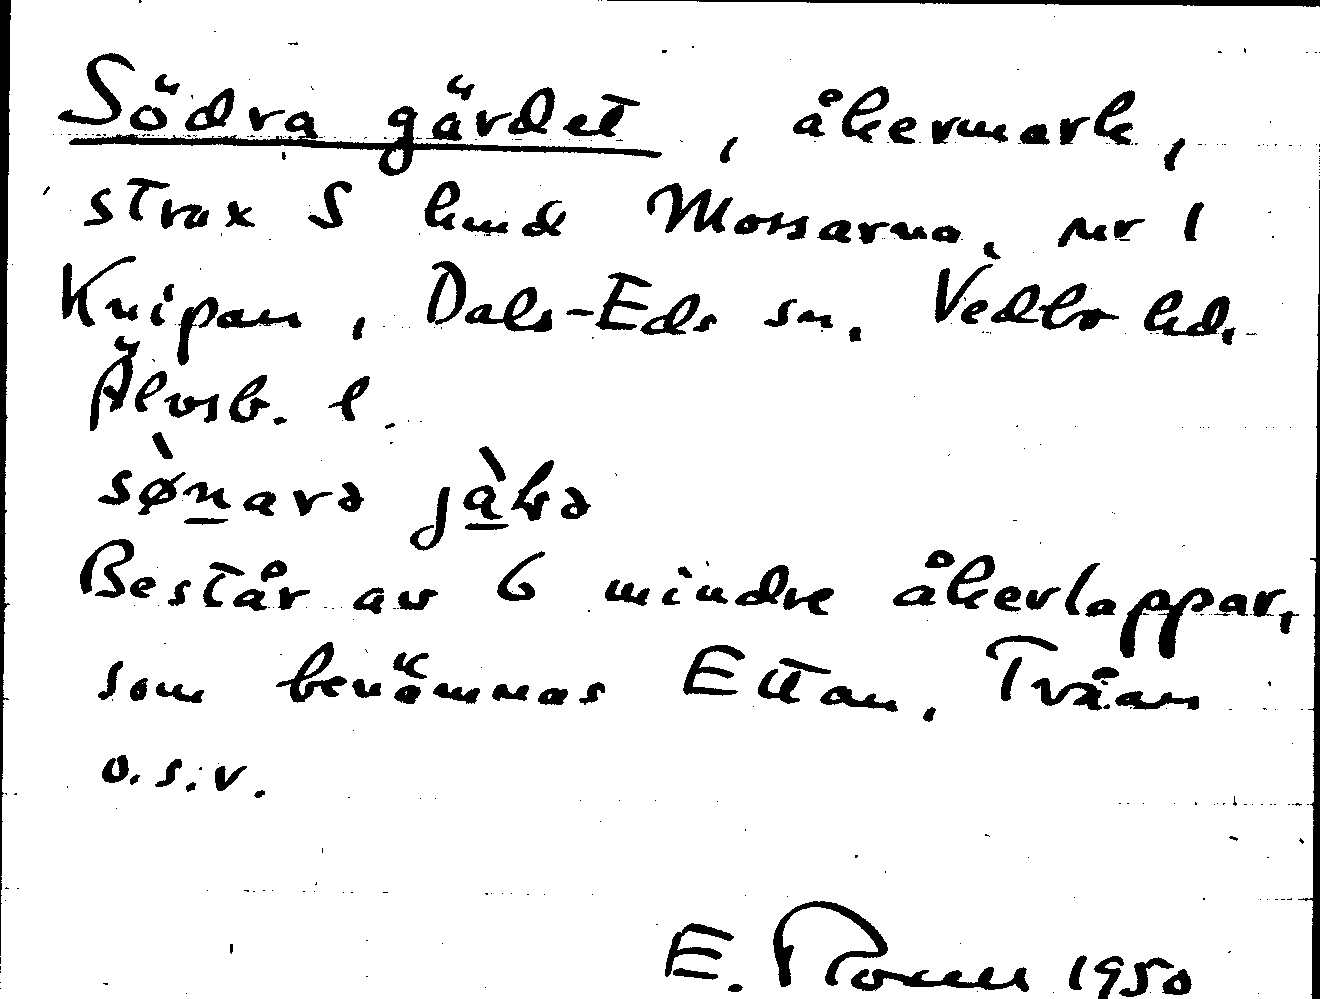 Södra gärdet, åkermark,
strax S hmd Mossarna, nr 1
Knipan, Dals-Eds sn. Vedbo hd.
Älvsb. l.
Består av 6 mindre åkerlappar,
som benämnas Ettan, Tvåan
o.s.v.
E. 1950